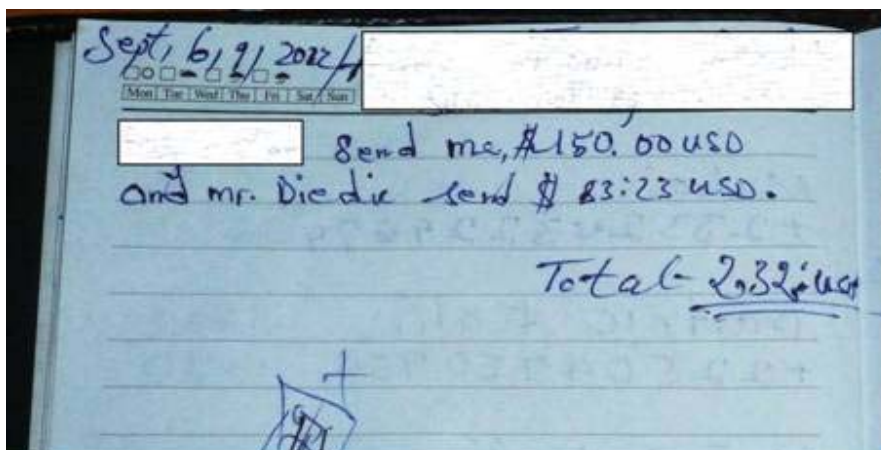 Sept, 6, 9, 2022
Mon Tue Wed Thu Fri Sat Sun
Send me, $150.00 USD
and mr. Diedie send $ 83:23 USD.
Total- 2,32; usd